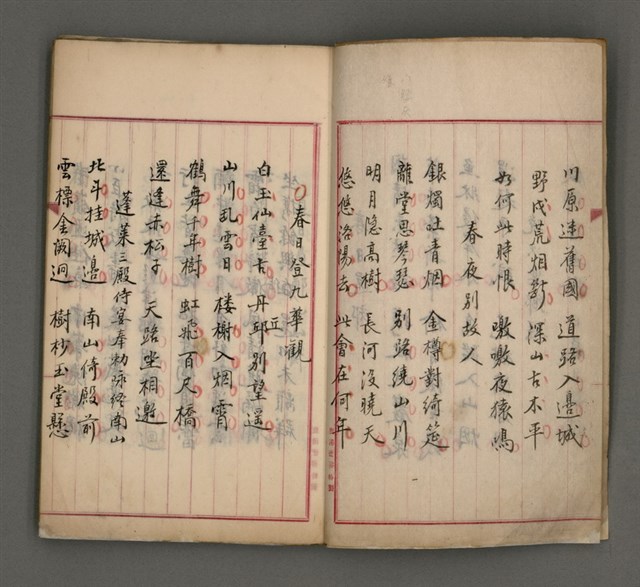 川原迷舊國　道路入邊城
野戍荒烟斷　深山古木平
如何此時恨　噭噭夜猿鳴
春夜別故人
銀燭吐青烟　金樽對綺筵
離堂思琴瑟　別路繞山川
明月隐高樹　長河沒曉天
悠悠洛陽去　此會在何年
春日登九華觀
白玉仙臺古　丹邱別望遥
近
山川乱雲日　楼榭入烟霄
鶴舞千年樹　虹飛百尺橋
還逢赤松子　天路坐相邀
蓬莱三殿侍宴奉勅咏終南山
北斗挂城邊　南山倚殿前
雲標金阙迥　樹杪玉堂懸